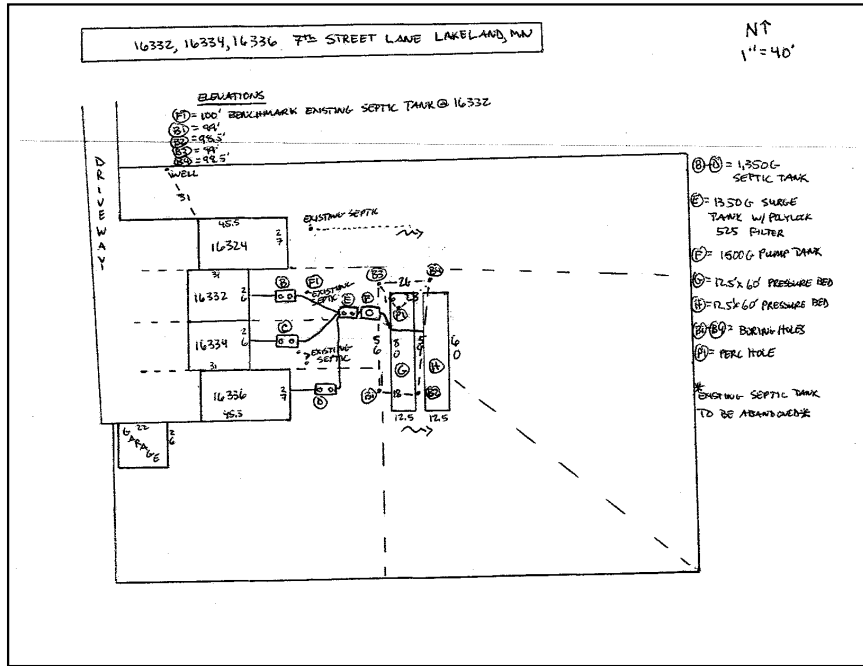 16332, 16334, 16336 7TH STREET LANE LAKELAND, MN
N↑
1"=40'
ELEVATIONS
F1 = 100' BENCHMARK EXISTING SEPTIC TANK @ 16332
B1 = 99'
B2 = 98.5'
B3 = 99'
B4 = 98.5'
DRIVEWAY
WELL
31
45.5
27
16324
EXISTING SEPTIC
31
26
16332
B
F1
EXISTING SEPTIC
E
F
B3
26
B4
23
P1
26
16334
31
C
EXISTING SEPTIC
56
80
59
60
G
H
16336
27
45.5
D
B1
18
B2
12.5
12.5
GARAGE
22
26
B-D = 1,350G
SEPTIC TANK
E = 1350G SURGE
TANK W/ POLYLOCK
525 FILTER
F = 1500G PUMP TANK
G = 12.5'x60' PRESSURE BED
H = 12.5'x60' PRESSURE BED
B1-B4 = BORING HOLES
P1 = PERC HOLE
*EXISTING SEPTIC TANK
TO BE ABANDONED*